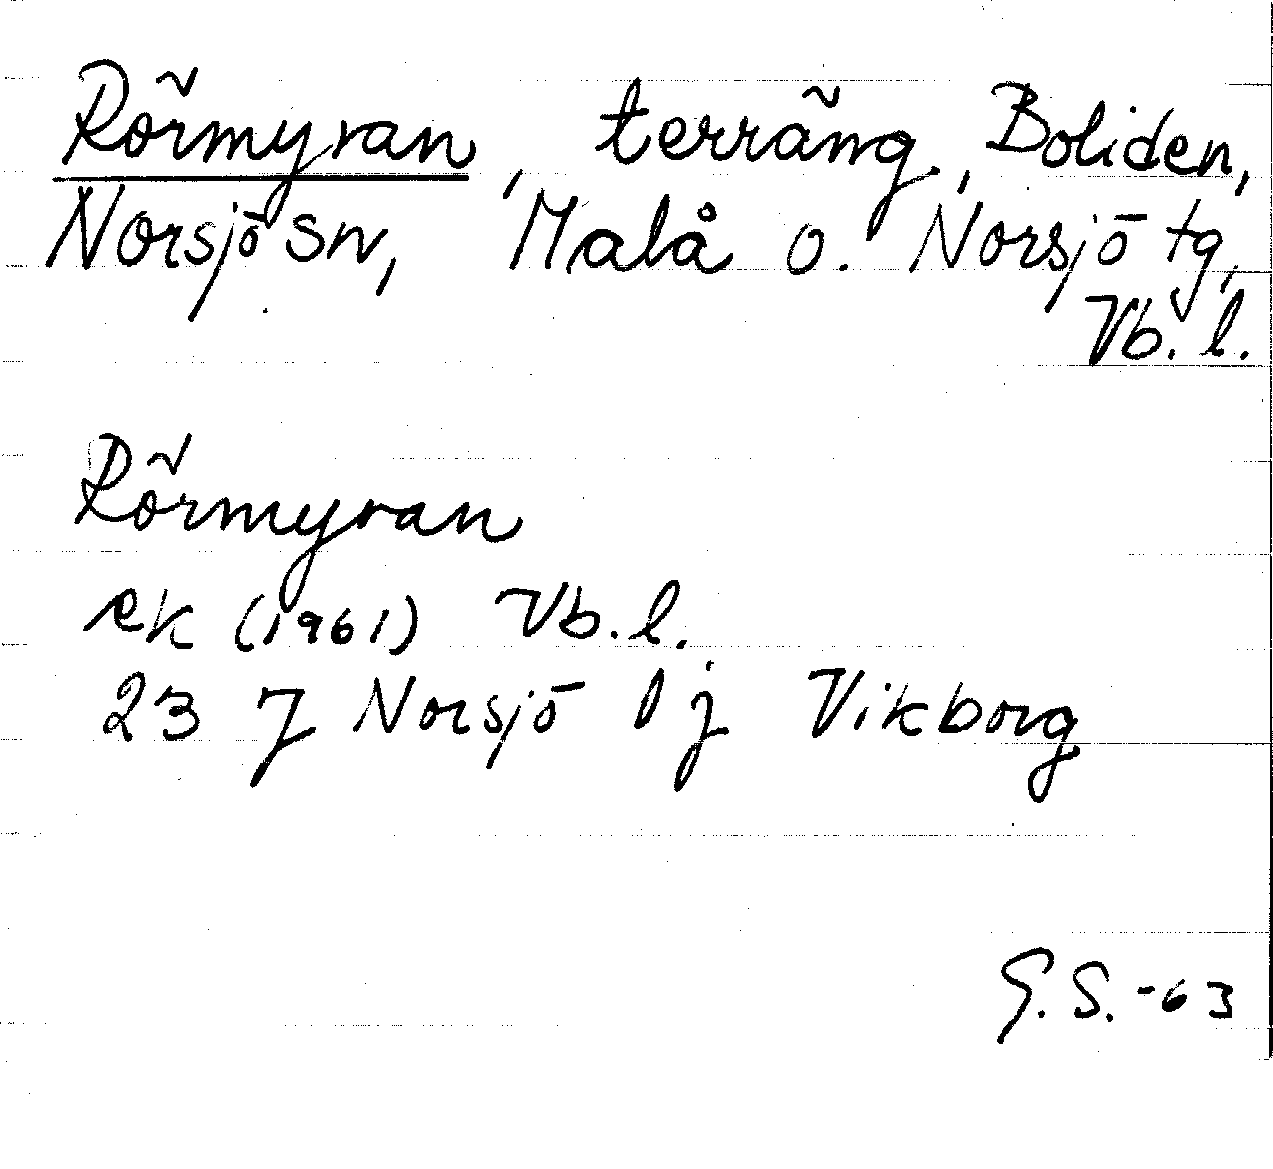 Rörmyran, terräng, Boliden,
Norsjö sn, Malå o. Norsjö tg,
Vb. l.
Rörmyran
ek (1961) Vb. l.
23 J Norsjö 1 j Vikborg
G. S. -63